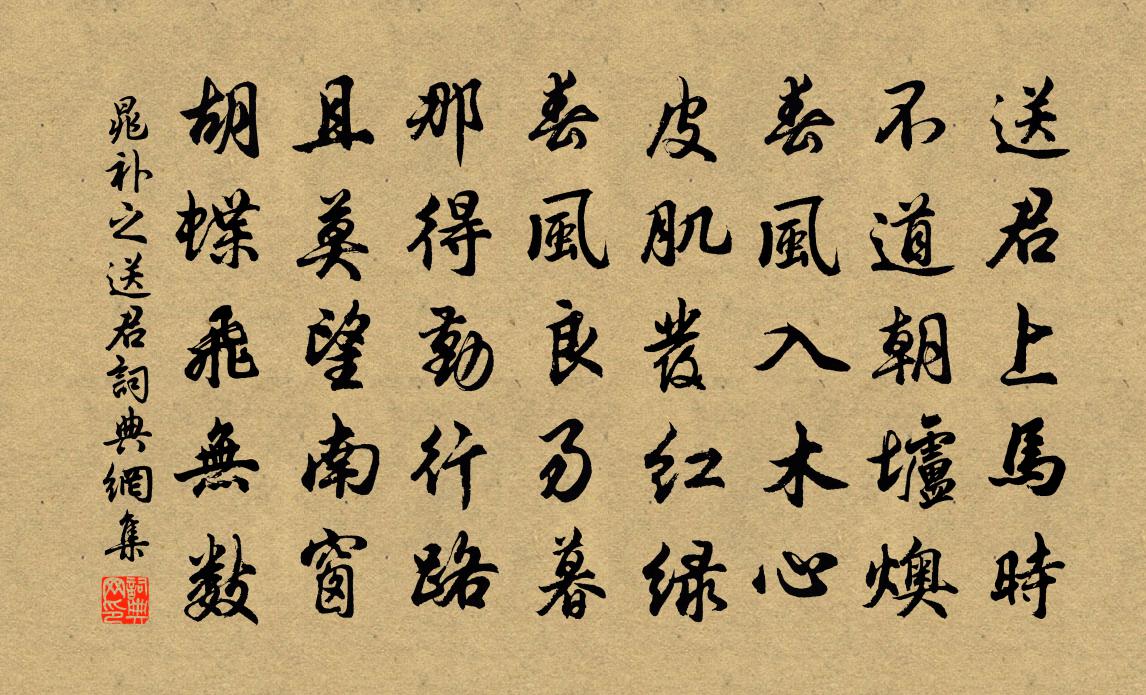 送君上馬時
不道朝壚燠
春風入木心
皮肌發紅緑
春風良易暮
那得勤行路
且莫望南窗
胡蝶飛無数
晁补之送君詞典網集
詞典网印